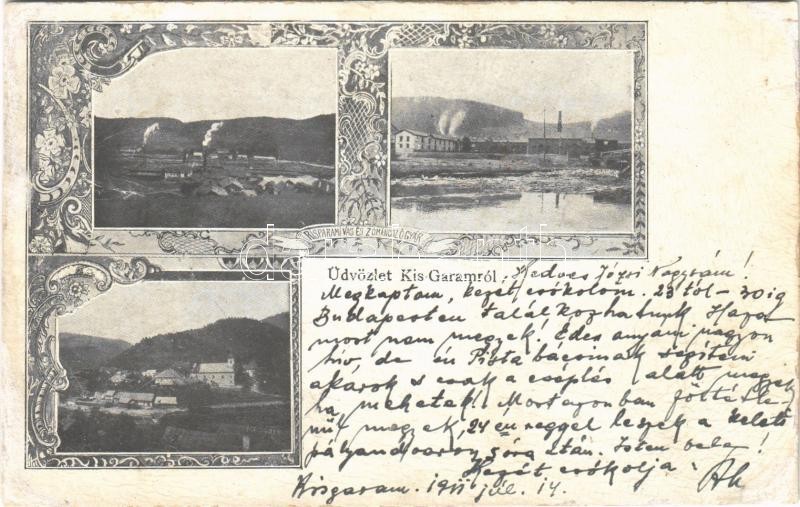 KISGARAMI VAS ÉS ZOMÁNCZGYÁR
Üdvözlet Kis-Garamról. Kedves Józsi Nagyrám!
Megkaptam, kezét csókolom. 23 tól – 30 ig
Budapesten találkozhatunk Haza
most nem megyek! Édes anyám nagyon
hív, de én Pista bácsinak segíteni
akarok s csak a cséplés alatt megyek
ha mehetek! Most azonban
megyek, 24 én reggel leszek a keleti
pályaudvaron óra után. Isten vele!
Kezét csókolja
Kisgaram. 1911 júl. 14.